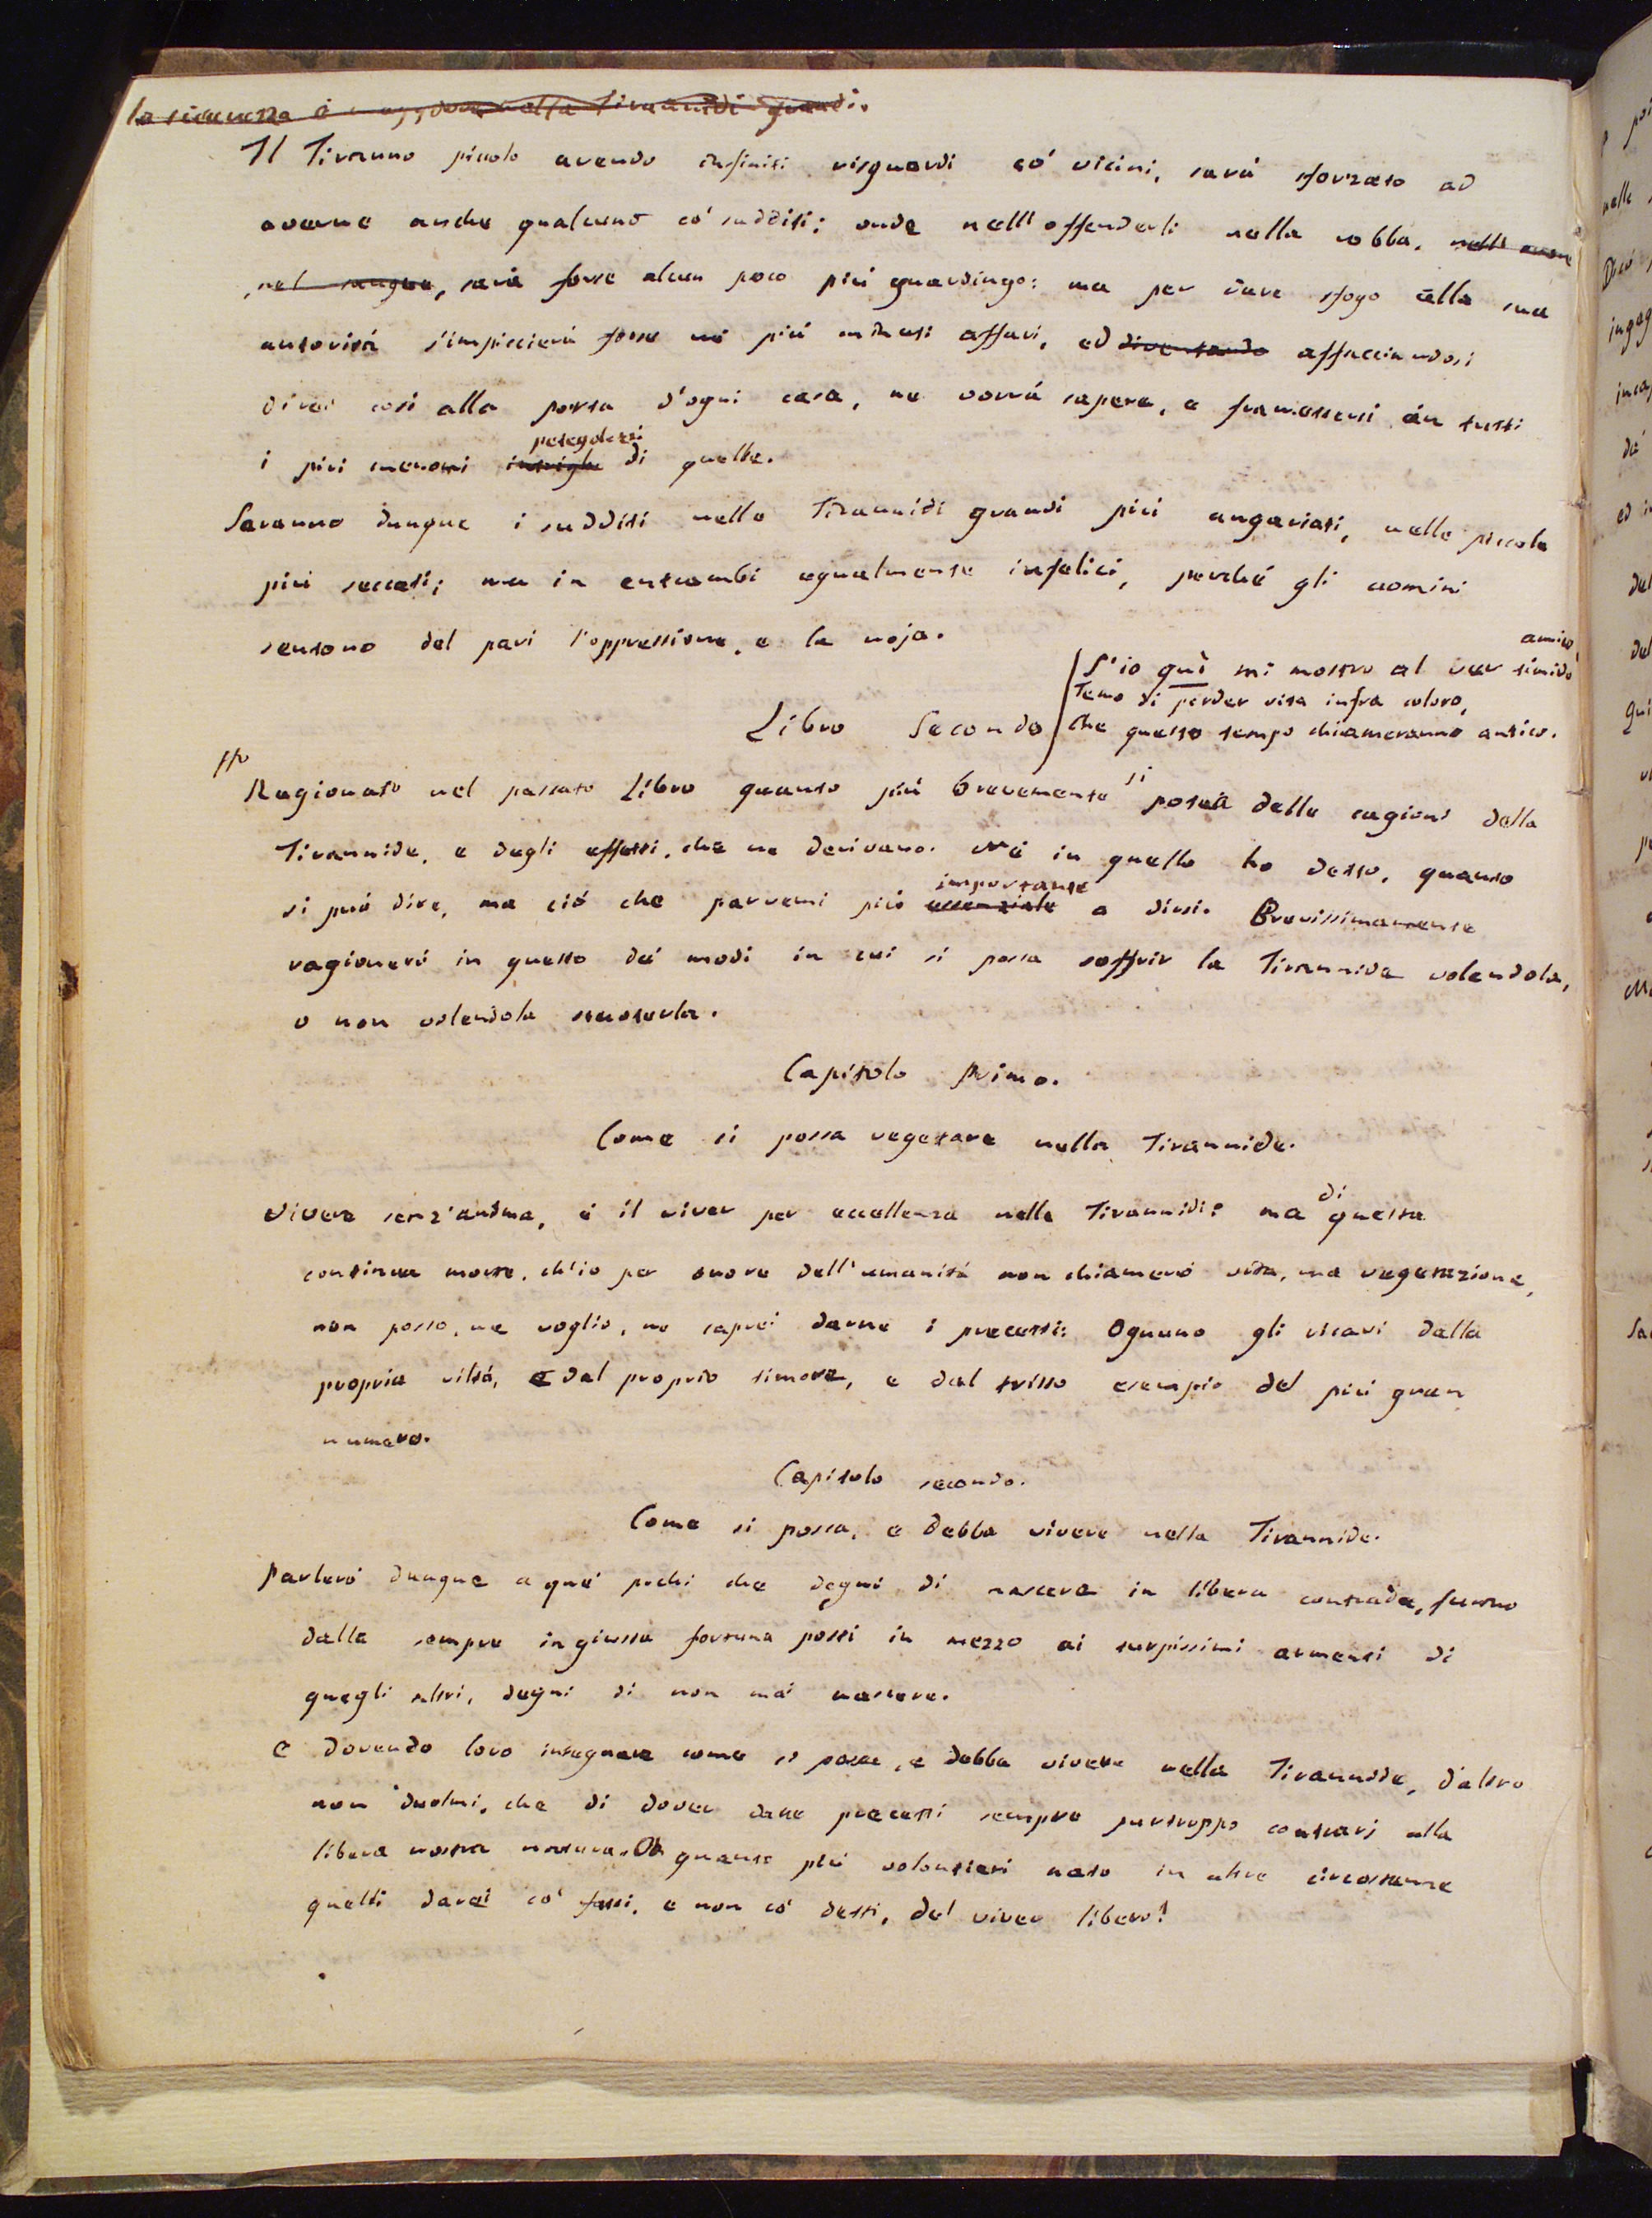 la sicurezza è maggiore nelle Tirannidi grandi.
Il Tiranno piccolo avendo infiniti risguardi co' vicini, sarà sforzato ad
averne anche qualcuno co' sudditi: onde nell'offenderli nella robba, nell'onore
nel sangue, sarà forse alcun poco più guardingo: ma per dare sfogo alla sua
autorità s'impiccierà forse ne' più minuti affari, ed diventando affacciandosi
direi così alla porta d'ogni casa, ne vorrà sapere, e framettersi in tutti
i più menomi intrighi petegolezzi di quelle.
Saranno dunque i sudditi nelle Tirannidi grandi più angariati, nelle piccole
più seccati; ma in entrambi egualmente infelici, perché gli uomini
sentono del pari l'oppressione, e la noja.
S'io quì mi mostro al ver timido amico,
Temo di perder vita infra coloro,
Che questo tempo chiameranno antico.
Libro Secondo
Ragionato nel passato Libro quanto più brevemente si potea delle cagioni della
Tirannide, e degli effetti, che ne derivano. Né in quello ho detto, quanto
si può dire, ma ciò che parvemi più essenziale importante a dirsi. Brevissimamente
ragionerò in questo dei modi in cui si possa soffrir la Tirannide volendola,
o non volendola scuoterla.
Capitolo Primo.
Come si possa vegetare nella Tirannide.
Vivere senz'anima, è il viver per eccellenza nelle Tirannidi: ma di questa
continua morte, ch'io per onore dell'umanità non chiamerò vita, ma vegetazione,
non posso, ne voglio, ne saprei darne i precetti: Ognuno gli ricavi dalla
propria viltà, e dal proprio timore, e dal tristo esempio del più gran
numero.
Capitolo secondo.
Come si possa, e debba vivere nella Tirannide.
Parlerò dunque a que' pochi che degni di nascere in libera contrada, furono
dalla sempre ingiusta fortuna posti in mezzo ai turpissimi armenti di
quegli altri, degni di non mai nascere.
E dovendo loro insegnare come si possa, e debba vivere nella Tirannide, d'altro
non duolmi, che di dover dare precetti sempre purtroppo contrarj alla
libera nostra natura. Oh quanto più volontieri nato in altre circostanze
quelli darei co' fatti, e non co' detti, del viver libero!